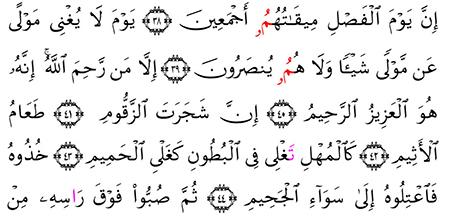 إِنَّ يَوْمَ ٱلْفَصْلِ مِيقَٰتُهُمُۥ أَجْمَعِينَ ﴿٣٨﴾ يَوْمَ لَا يُغْنِى مَوْلًى
عَن مَّوْلًى شَيْـًٔا وَلَا هُمُۥ يُنصَرُونَ ﴿٣٩﴾ إِلَّا مَن رَّحِمَ ٱللَّهُ إِنَّهُۥ
هُوَ ٱلْعَزِيزُ ٱلرَّحِيمُ ﴿٤٠﴾ إِنَّ شَجَرَتَ ٱلزَّقُّومِ ﴿٤١﴾ طَعَامُ
ٱلْأَثِيمِ ﴿٤٢﴾ كَٱلْمُهْلِ تَغْلِى فِى ٱلْبُطُونِ كَغَلْىِ ٱلْحَمِيمِ ﴿٤٣﴾ خُذُوهُ
فَٱعْتِلُوهُ إِلَىٰ سَوَآءِ ٱلْجَحِيمِ ﴿٤٤﴾ ثُمَّ صُبُّوا۟ فَوْقَ رَاسِهِۦ مِنْ